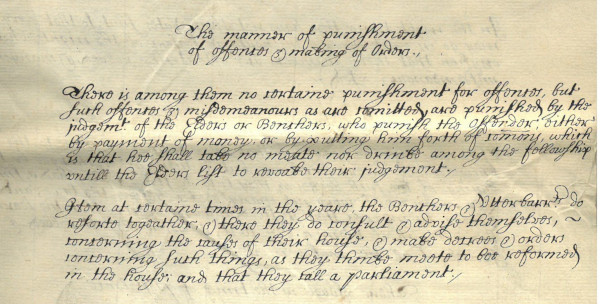 The manner of punishment
of offences & making of Orders.,
There is among them no certaine punishment for offences, but
such offences & misdemeanours as are comitted, are punished by the
judgemt. of the Elders or Benchers, who punish the Offender either
by payment of money, or by putting him forth of comons, which
is that hee shall take no meate nor drinke among the fellowship
untill the Elders list to revoake their judgement.,
Item at certaine times in the yeare, the Benchers & Utterbarrs do
resorte togeather, & there they do consult & advise themselves, ~
concerning the causes of their house, & make decrees & orders
concerning such things, as they thinke meete to bee reformed
in the house; and that they call a parliament.,